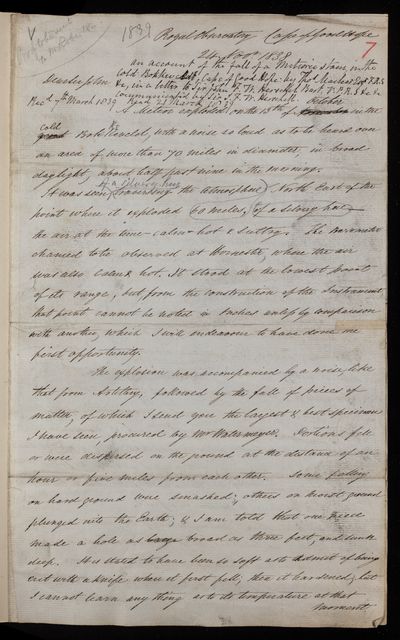 1839
Royal Observatory Cape of Good Hope
7
24 Nov 1838
an account of the fall of a Meteoric stone in the
Cold Bokkeveld, Cape of Good Hope by Tho.s Maclear Esq F.R.S
&c, in a letter to Sir John F. W. Herschel Bart. V.P.R.S &c &c
Dear Sir John
communicated by Sir J. F. W. Herschel.
Rec.d 7th March 1839 Read 21 March 1839
October
A Meteor exploded on the 13th of in the
cold
Bokkeveld, with a noise so loud as to be heard over
an area of more than 70 miles in diameter, in broad
daylight, about half past nine in the morning.
of a silvery hue
It was seen traversing the atmosphere North East of the
point where it exploded 60 miles, of a silvery hue
the air at the time calm hot & sultry. The barometer
chanced to be observed at Worcester, where the air
was also calm & hot. It stood at the lowest point
of its range, but from the construction of the Instrument,
that point cannot be noted in Inches only by comparison
with another, which I will endeavour to have done on
first opportunity.
The explosion was accompanied by a noise like
that from Artillery, followed by the fall of pieces of
matter, of which I send you the largest & best specimen
I have seen, procured by Mr Watermeyer. Portions fell
or were dispersed on the ground at the distance of an
hour or five miles from each other. Some falling
on hard ground were smashed; others on moist ground
plunged into the Earth; & I am told that one piece
made a hole as large broad as three feet, and sunk
deep. It is stated to have been so soft as to admit of being
cut with a knife when it first fell; then it hardened; but
I cannot learn any thing as to its temperature at that
moment